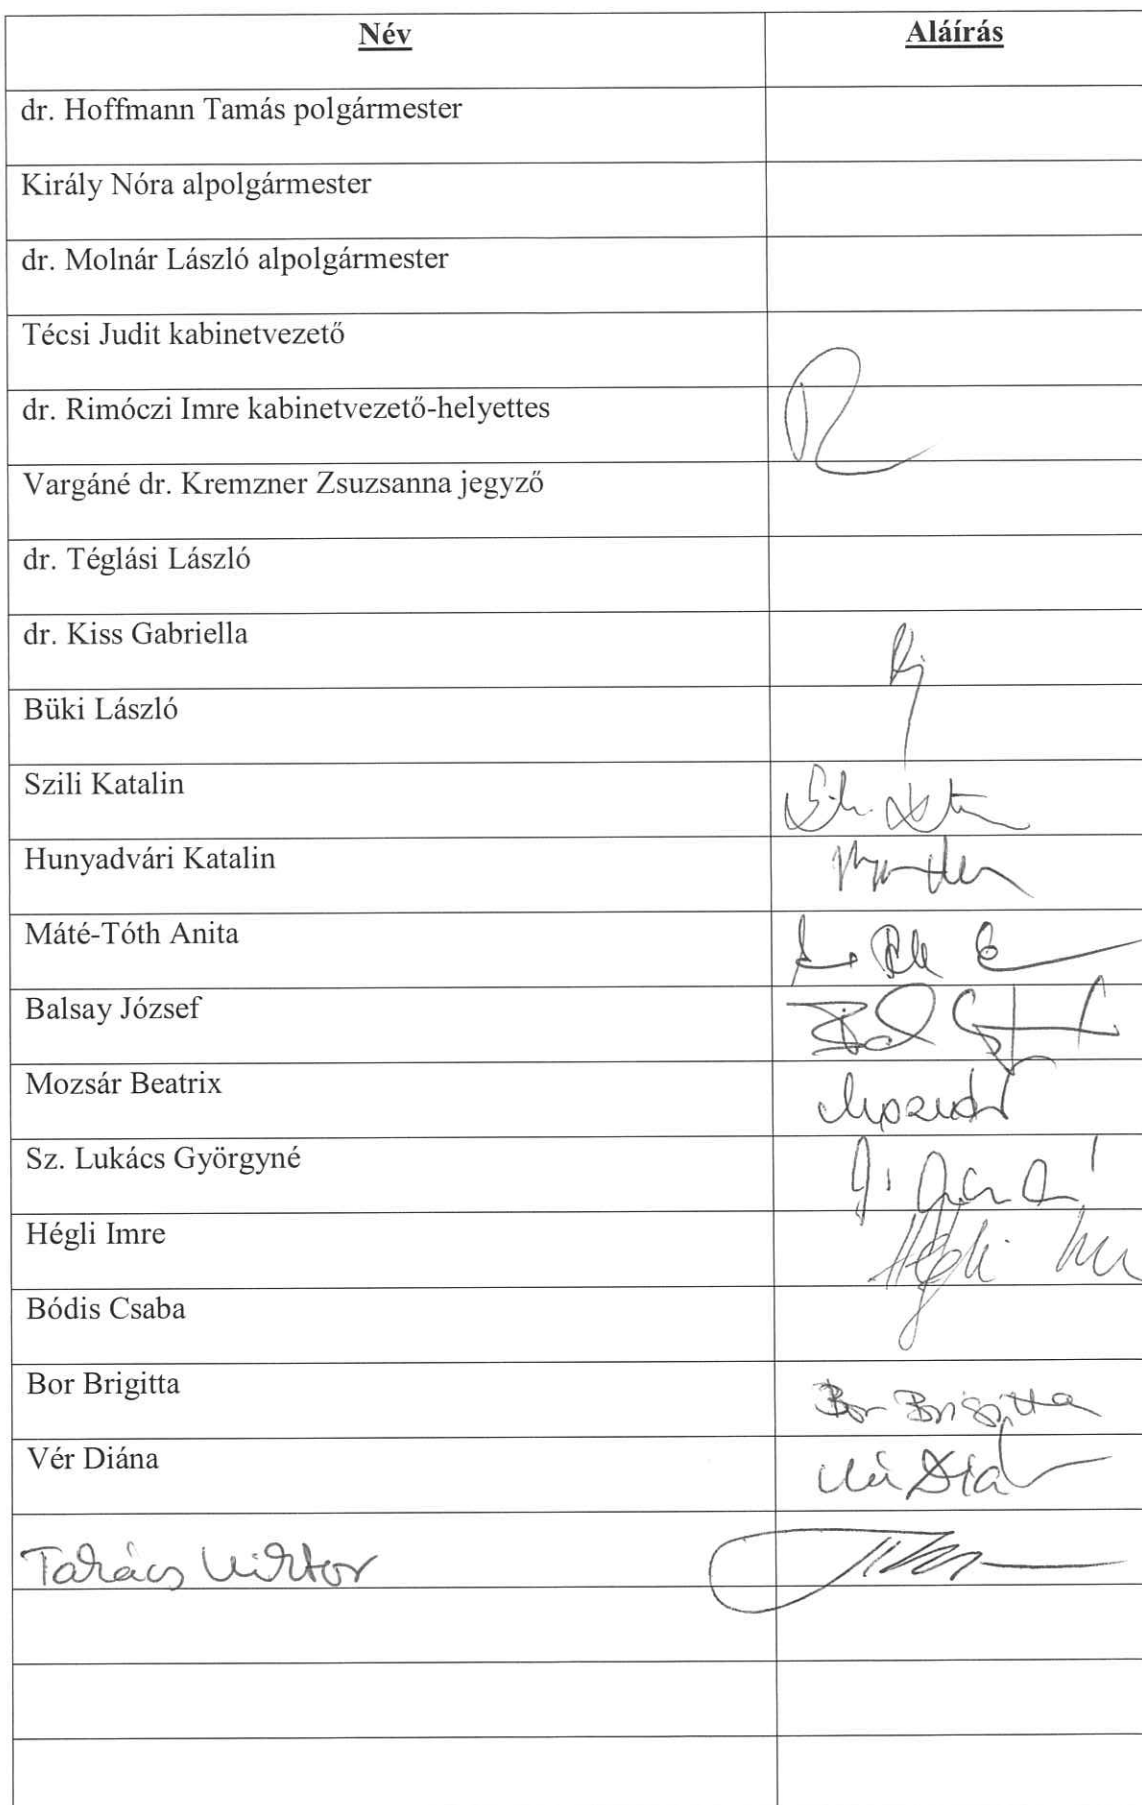 Név Aláírás
dr. Hoffmann Tamás polgármester
Király Nóra alpolgármester
dr. Molnár László alpolgármester
Técsi Judit kabinetvezető
dr. Rimóczi Imre kabinetvezető-helyettes
Vargáné dr. Kremzner Zsuzsanna jegyző
dr. Téglási László
dr. Kiss Gabriella
Büki László
Szili Katalin
Hunyadvári Katalin
Máté-Tóth Anita
Balsay József
Mozsár Beatrix
Sz. Lukács Györgyné
Hégli Imre
Bódis Csaba
Bor Brigitta Bor Brigitta
Vér Diána
Takács Viktor